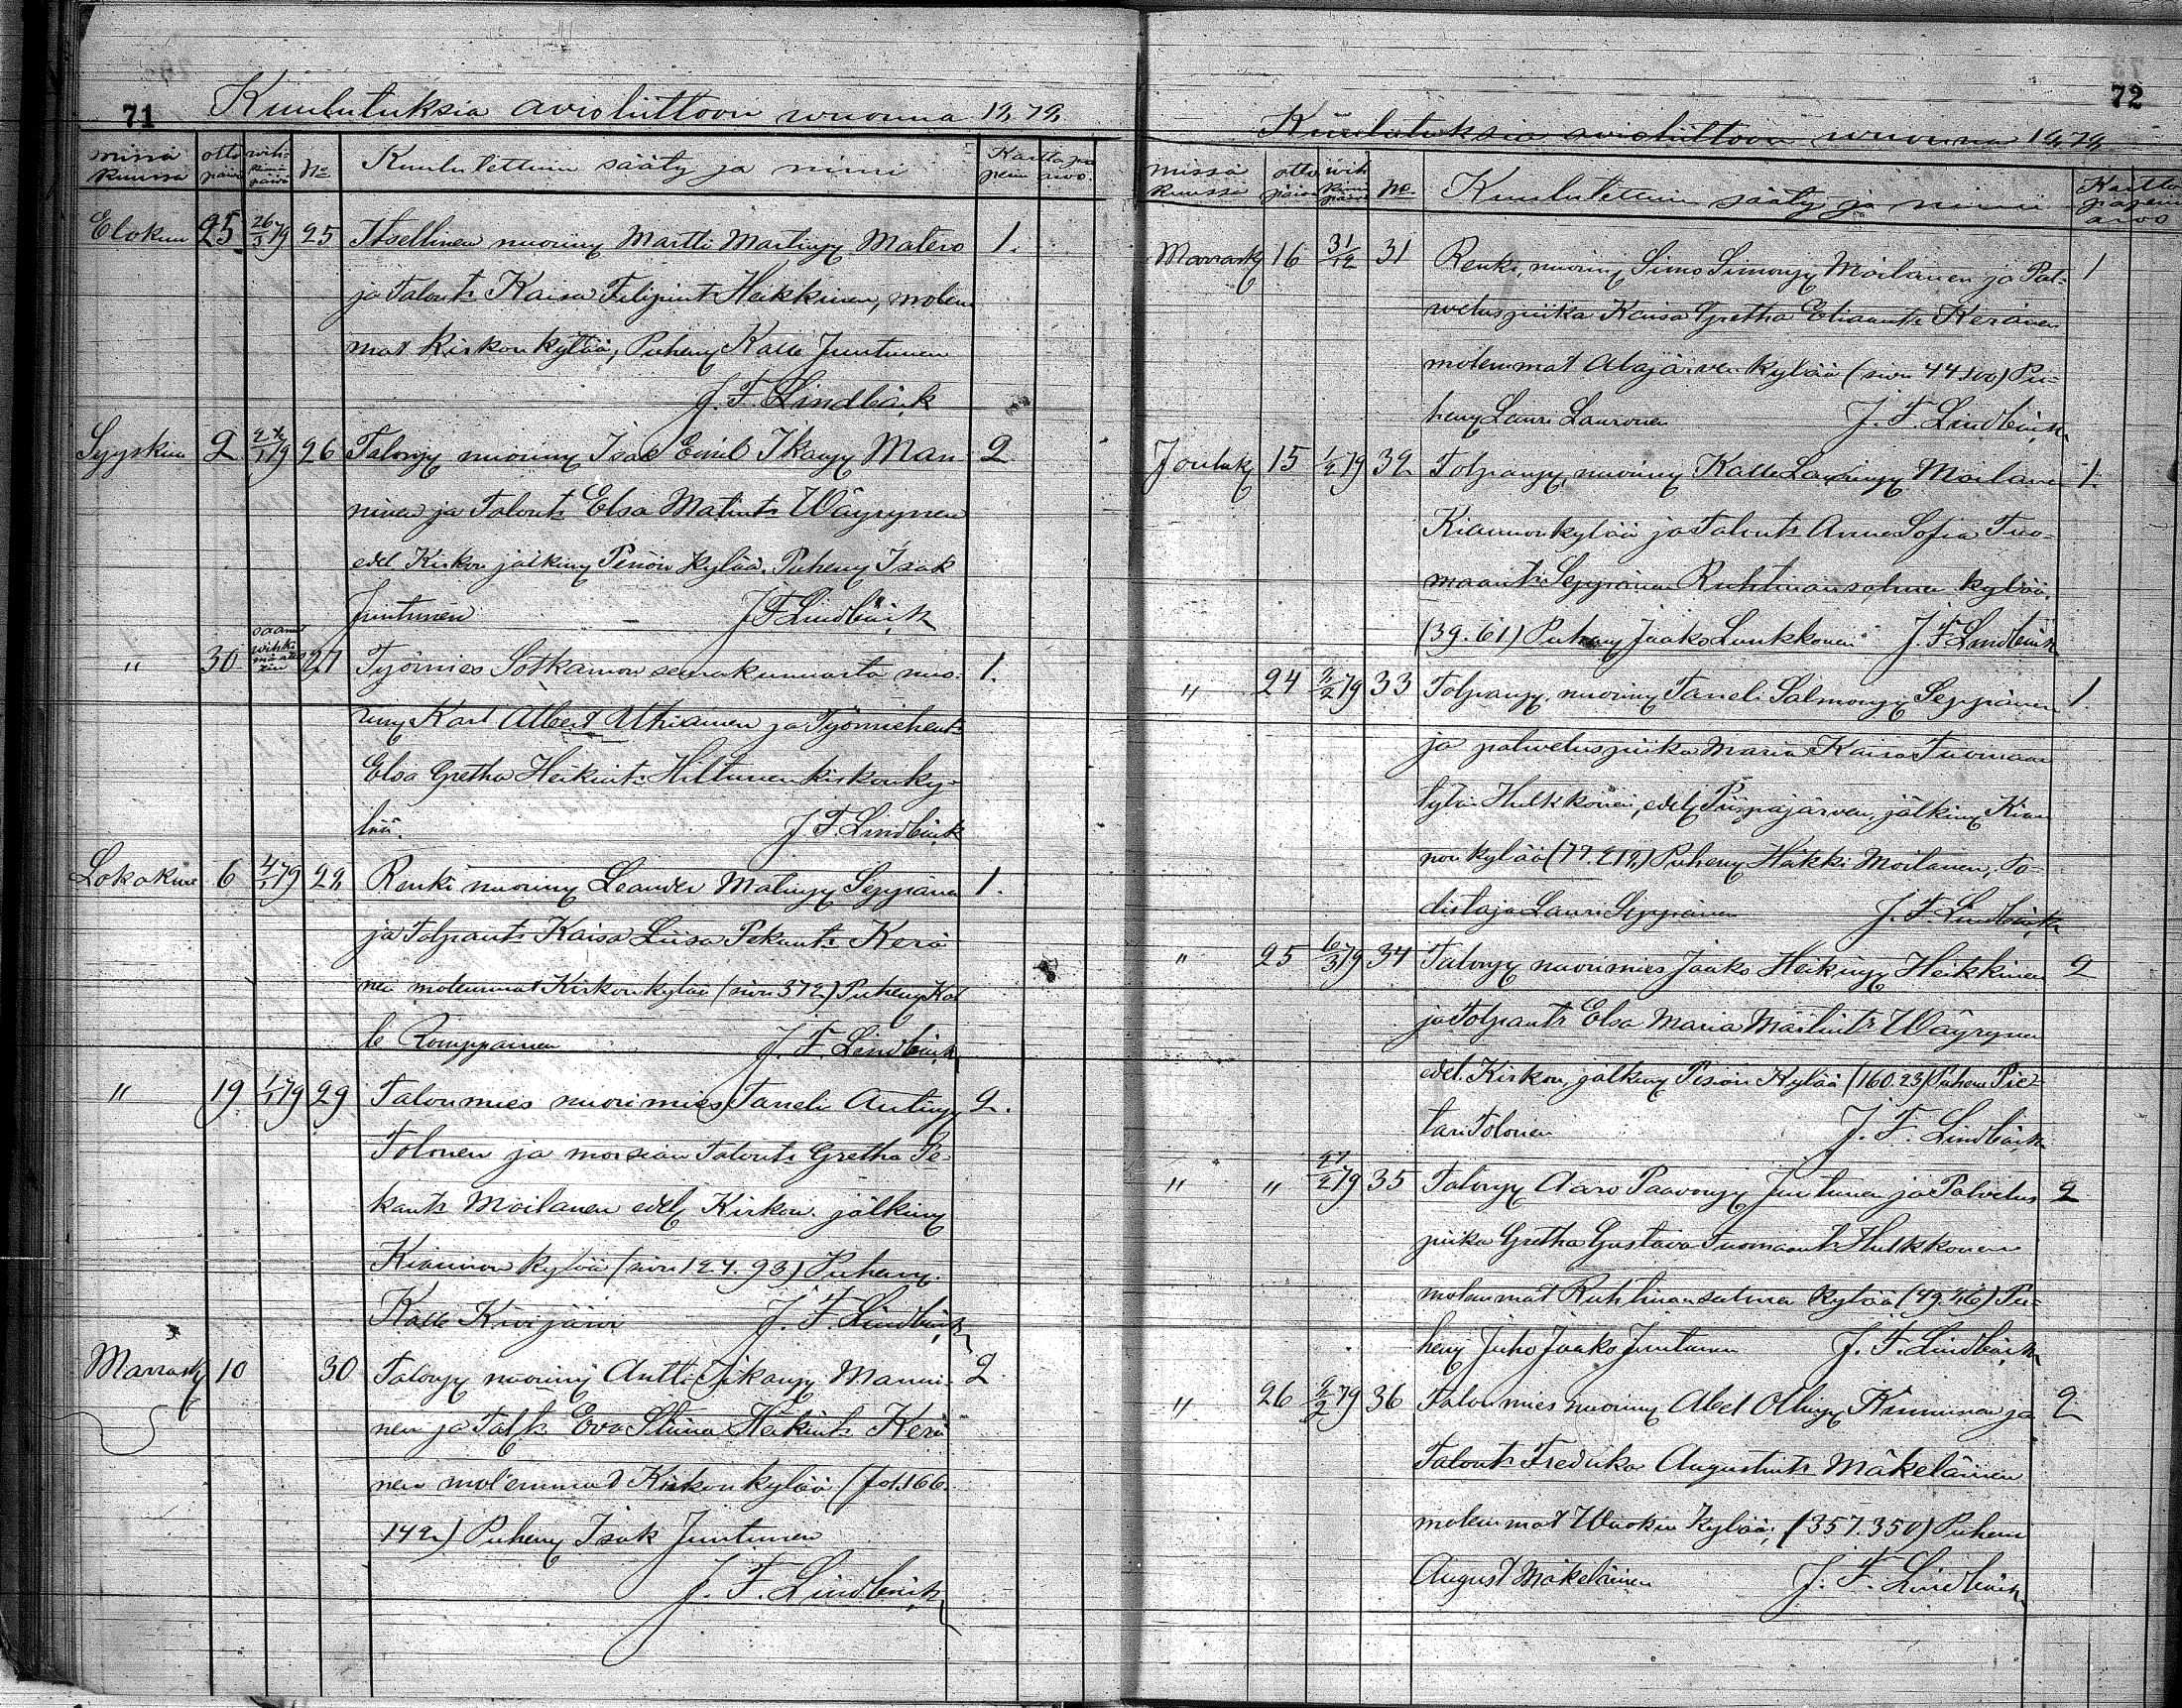 71
Kuulutuksia avioliittoon wuonna 1878
missä kuussa otto päivä wihkimä päivä No Kuulutettuin sääty ja nimi Karttapaperin arvo
Elokuu 25 26/3 79 25 Itsellinen nuorimj Martti Martinpj Matero 1.
ja Talont: Kaisa Filipint: Heikkinen, molem
mat Kirkonkylää, Puhemj Kalle Juntunen
J. F. Lindbäck
Syyskuu 2 79 26 Talonpj nuorimj Isak Emil Ikanpj Man 2
ninen ja Talont: Elsa Matint: Wäyrynen
edel Kirkon jälkimj Pesiön kylää. Puhemj Isak
Juntunen J F Lindbäck
" 30 27 Työmies Sotkamon seurakunnasta nuo- 1.
rimj Karl Albert ja Työmiehent:
Elsa Gretha Heikint: Hiltunen kirkonky-
lää. J. F. Lindbäck
Lokakuu 6 4/1 79 28 Renki nuorimj Leander Matinpj Seppänen 1.
ja Tolpant: Kaisa Liisa Pekant: Kerä
nen molemmat Kirkonkylää (sivu 372) Puhemj Kal
le Romppainen J. F. Lindbäck
" 19 1/1 79 29 Talonmies nuorimies Taneli Antinpj 2.
Tolonen ja morsian Talont: Gretha Pe
kant: Moilanen edelj Kirkon. jälkimj
Kiannon kylää (sivu 127. 93) Puhemj.
Kalle Kivijärvi J. F. Lindbäck
Marrask 10 30 Talonpj nuorimj Antti Ikanpj Manni- 2
nen ja Talt: Eva Stiina Heikint: Kerä
nen molemmat Kirkonkylää (Fol. 166.
142) Puhemj Isak Juntunen
J. F. Lindbäck
72
Kuulutuksia avioliittoon wuonna 1878
missä kuussa otto päivä wihkimä päivä No. Kuulutettuin sääty ja nimi Karttapaperin arvo
Marrask 16 31/12 31 Renki, nuorimj Simo Simonpj Moilanen ja Pal- 1
weluspiika Kaisa Gretha Eliaant: Keränen
molemmat Alajärven kylää (sivu 44.100) Pu-
hemj Lauri Lauronen J. F. Lindbäck
Jouluk 15 1/2 79 32 Tolpanpj, nuorimj Kalle Laurinpj Moilanen 1.
Kiannonkylää ja Talont: Anna Sofia Tuo-
maant: Seppänen Ruhtinansalmen kylää.
(39. 61) Puhemj Jaako Lukkonen J. F. Lindbäck
" 24 2/2 79 33 Tolpanpj, nuorimj Taneli Salmonpj Seppänen 1.
ja palweluspiika Maria Kaisa Tuomaan
tytär Hulkkonen, edelj Piispajärven, jälkimj Kian
non kylää (77. 218) Puhemj Heikki Moilanen, To-
distaja Lauri Seppänen J. F. Lindbäck
" 25 6/3 79 34 Talonpj nuorimies Jaako Heikinpj Heikkinen 2
ja Tolpant: Elsa Maria Martint: Wäyrynen
edel. Kirkon, jälkimj Pesiön Kylää (160. 23) Puhem Pie-
tari Tolonen J. F. Lindbäck
" " 27/2 79 35 Talonpj Aaro Paavonpj Juntunen ja Palvelus 2
piika Gretha Gustava Tuomaant: Hulkkonen
molemmat Ruhtinansalmen kylää (49. 46) Pu-
hemj Juho Jaako Juntunen J. F. Lindbäck
" 26 2/2 79 36 Talonmies nuorimj Abel Ollinpj Kinnunen ja 2
Talont: Fredrika Augustint: Mäkeläinen
molemmat Wuokin Kylää, (357. 350) Puhem
August Mäkeläinen J. F. Lindbäck